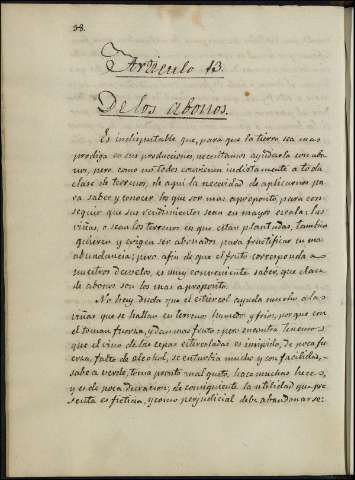 98.
Articulo 13.
De los abonos.
Es indisputable que, para que la tierra sea mas
prodiga en sus producciones, necesitamos ayudarla con abo-
nos, pero como no todos convienen indistintamente a toda
clase de terrenos, de aqui la necesidad de aplicarnos pa
ra saber y conocer los que son mas aproposito, para con-
seguir que sus rendimientos sean en mayor escala: las
viñas, o sean los terrenos en que estan plantadas, tambien
quieren y exigen ser abonados para fructificar en mas
abundancia; pero afin de que el fruto corresponda a
nuestros desvelos, es muy conveniente saber, que clase
de abono son los mas aproposito.
No hay duda que el estercol ayuda mucho a las
viñas que se hallan en terreno humedo y frios, por que con
el toman fuerza, y dan mas fruto: pero encontra tenemos
que el vino de las cepas estercoladas es insipido, de poca
fuerza, falto de alcohol, se enturbia mucho y con facilidad,
sabe a verde, toma pronto mal gusto, hace muchas heces,
y es de poca duracion; de consiguiente la utilidad que pre
senta es ficticia, y como perjudicial debe abandonarse: